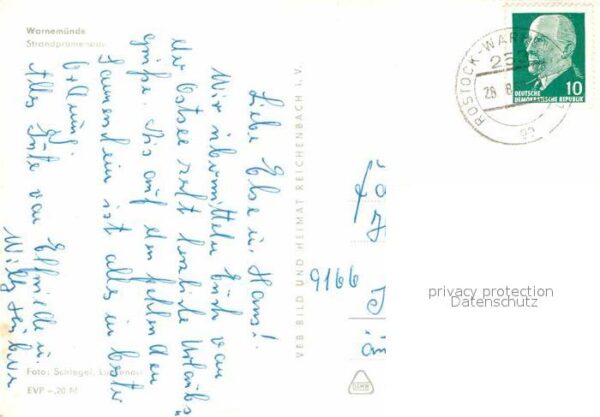 Warnemünde
Strandpromenade
Liebe Else u. Hans!
Wir übermitteln Euch von
der Ostsee recht herzliche Urlaubs
grüße. Bis auf den fehlenden
Sonnenschein ist alles in bester
Ordnung!
Alles Gute von Elfriede u.
Willy
Foto: Schlegel,
EVP -,20 M
VEB BILD UND HEIMAT REICHENBACH I. V.
ROSTOCK-WAR
10
DEUTSCHE
DEMOKRATISCHE REPUBLIK
9166
privacy protection
Datenschutz